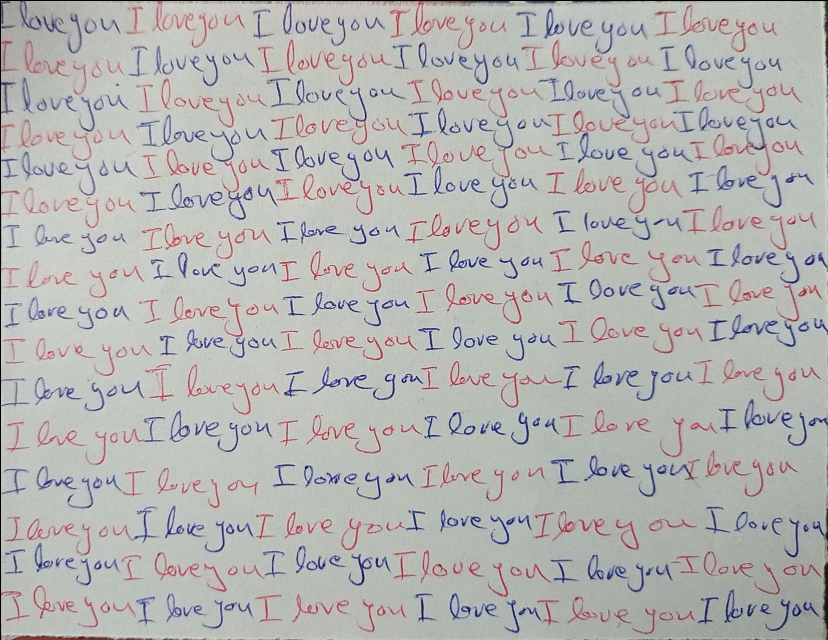 I love you I love you I love you I love you I love you I love you
I love you I love you I love you I love you I love you I love you
I love you I love you I love you I love you I love you I love you
I love you I love you I love you I love you I love you I love you
I love you I love you I love you I love you I love you I love you
I love you I love you I love you I love you I love you I love you
I love you I love you I love you I love you I love you I love you
I love you I love you I love you I love you I love you I love you
I love you I love you I love you I love you I love you I love you
I love you I love you I love you I love you I love you I love you
I love you I love you I love you I love you I love you I love you
I love you I love you I love you I love you I love you I love you
I love you I love you I love you I love you I love you I love you
I love you I love you I love you I love you I love you I love you
I love you I love you I love you I love you I love you I love you
I love you I love you I love you I love you I love you I love you